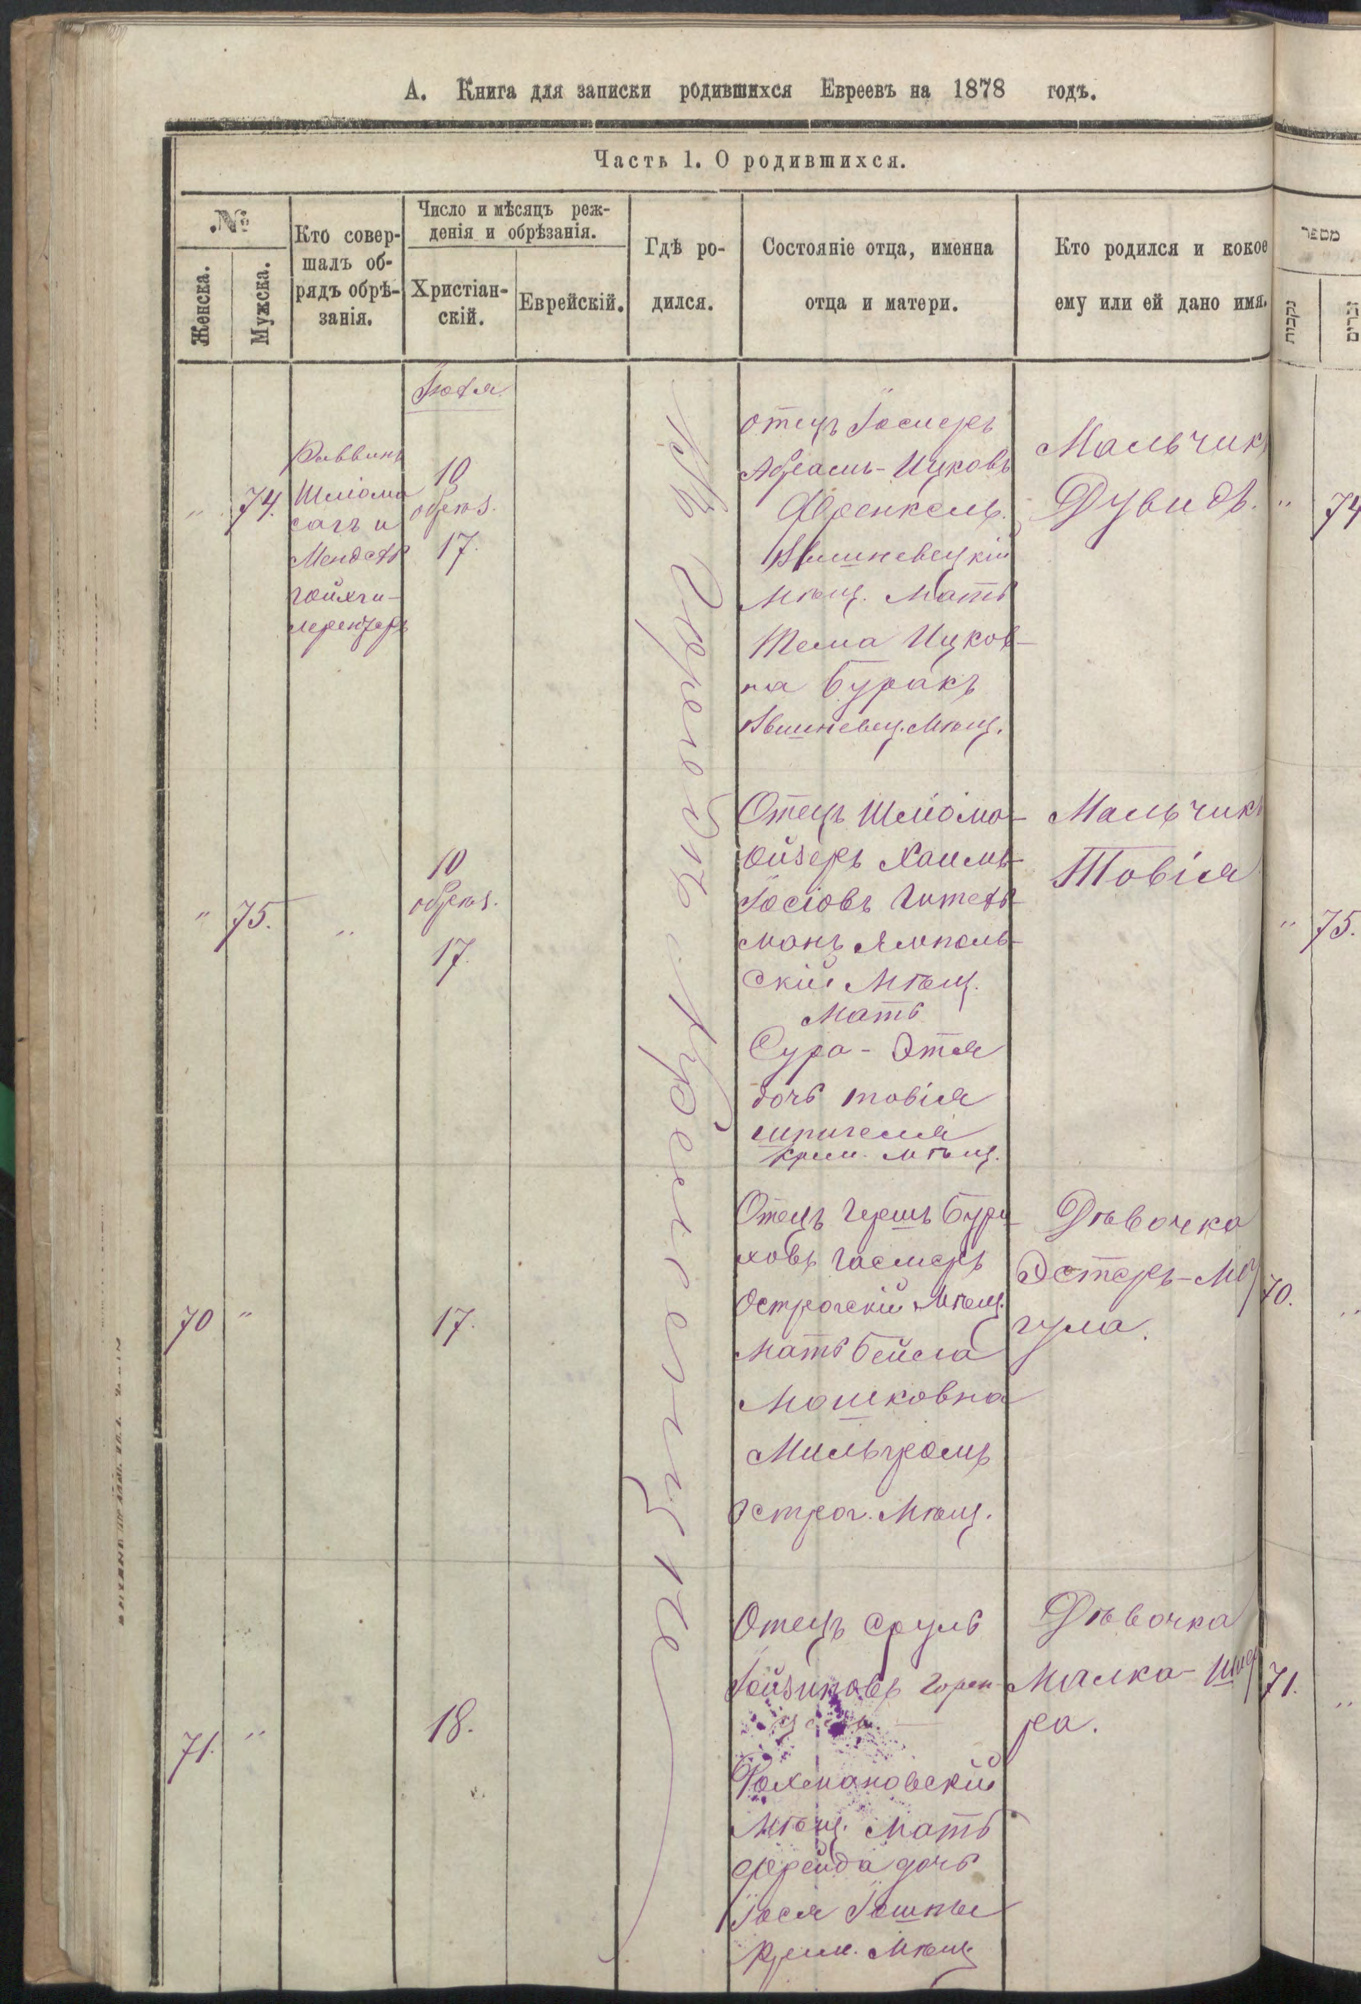 А. Книга для записки родившихся Евреевъ на 1878 годъ.
Часть 1. О родившихся.
№
Женска.
Мужска.
Кто совер-
шалъ об-
рядъ обрѣ-
занія.
Число и мѣсяцъ реж-
денія и обрѣзанія.
Христіан-
скій.
Еврейскій.
Гдѣ ро-
дился.
Состояніе отца, именна
отца и матери.
Кто родился и кокое
ему или ей дано имя.
מספר
נקבות
זכרים
Іюля
"
74.
Раввинъ
Шліома
и
10
обрѣз.
17.
Въ г. Кременцѣ
отецъ Іосиеръ
Абрамъ-Ицковъ
Френкель.
Вишневецкій
Мѣщ. Мать
Тема Ицков-
на Буракъ
Вишневец. Мѣщ.
Мальчикъ
Дувидъ.
"
74
"
75.
"
10
обрѣз.
17.
Отецъ Шліома-
Ойзеръ Хаимъ-
Іосіовъ Гитель-
манъ Ямполь-
скій Мѣщ.
Мать
Сура-Этля
дочь товія
шпигеля
Крем. мѣщ.
Мальчикъ
Товія
"
75.
70
"
17.
Отецъ Гершъ Бури-
ховъ
Острогскій Мѣщ.
Мать Бейла
Мошковна
Мильгромъ
Острог. Мѣщ.
Дѣвочка
Эстеръ-Мо
гула.
70.
"
71.
"
18.
Отецъ Сруль
Рохмановскій
Мѣщ. Мать
Фрейда дочь
Крем. Мѣщ.
Дѣвочка
Малка-Шиф
ра.
71.
"